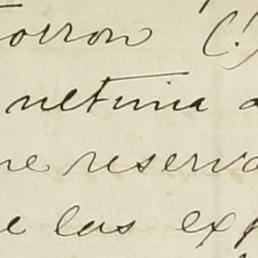 orron (!)
ultima a
ne reserva
e las exp